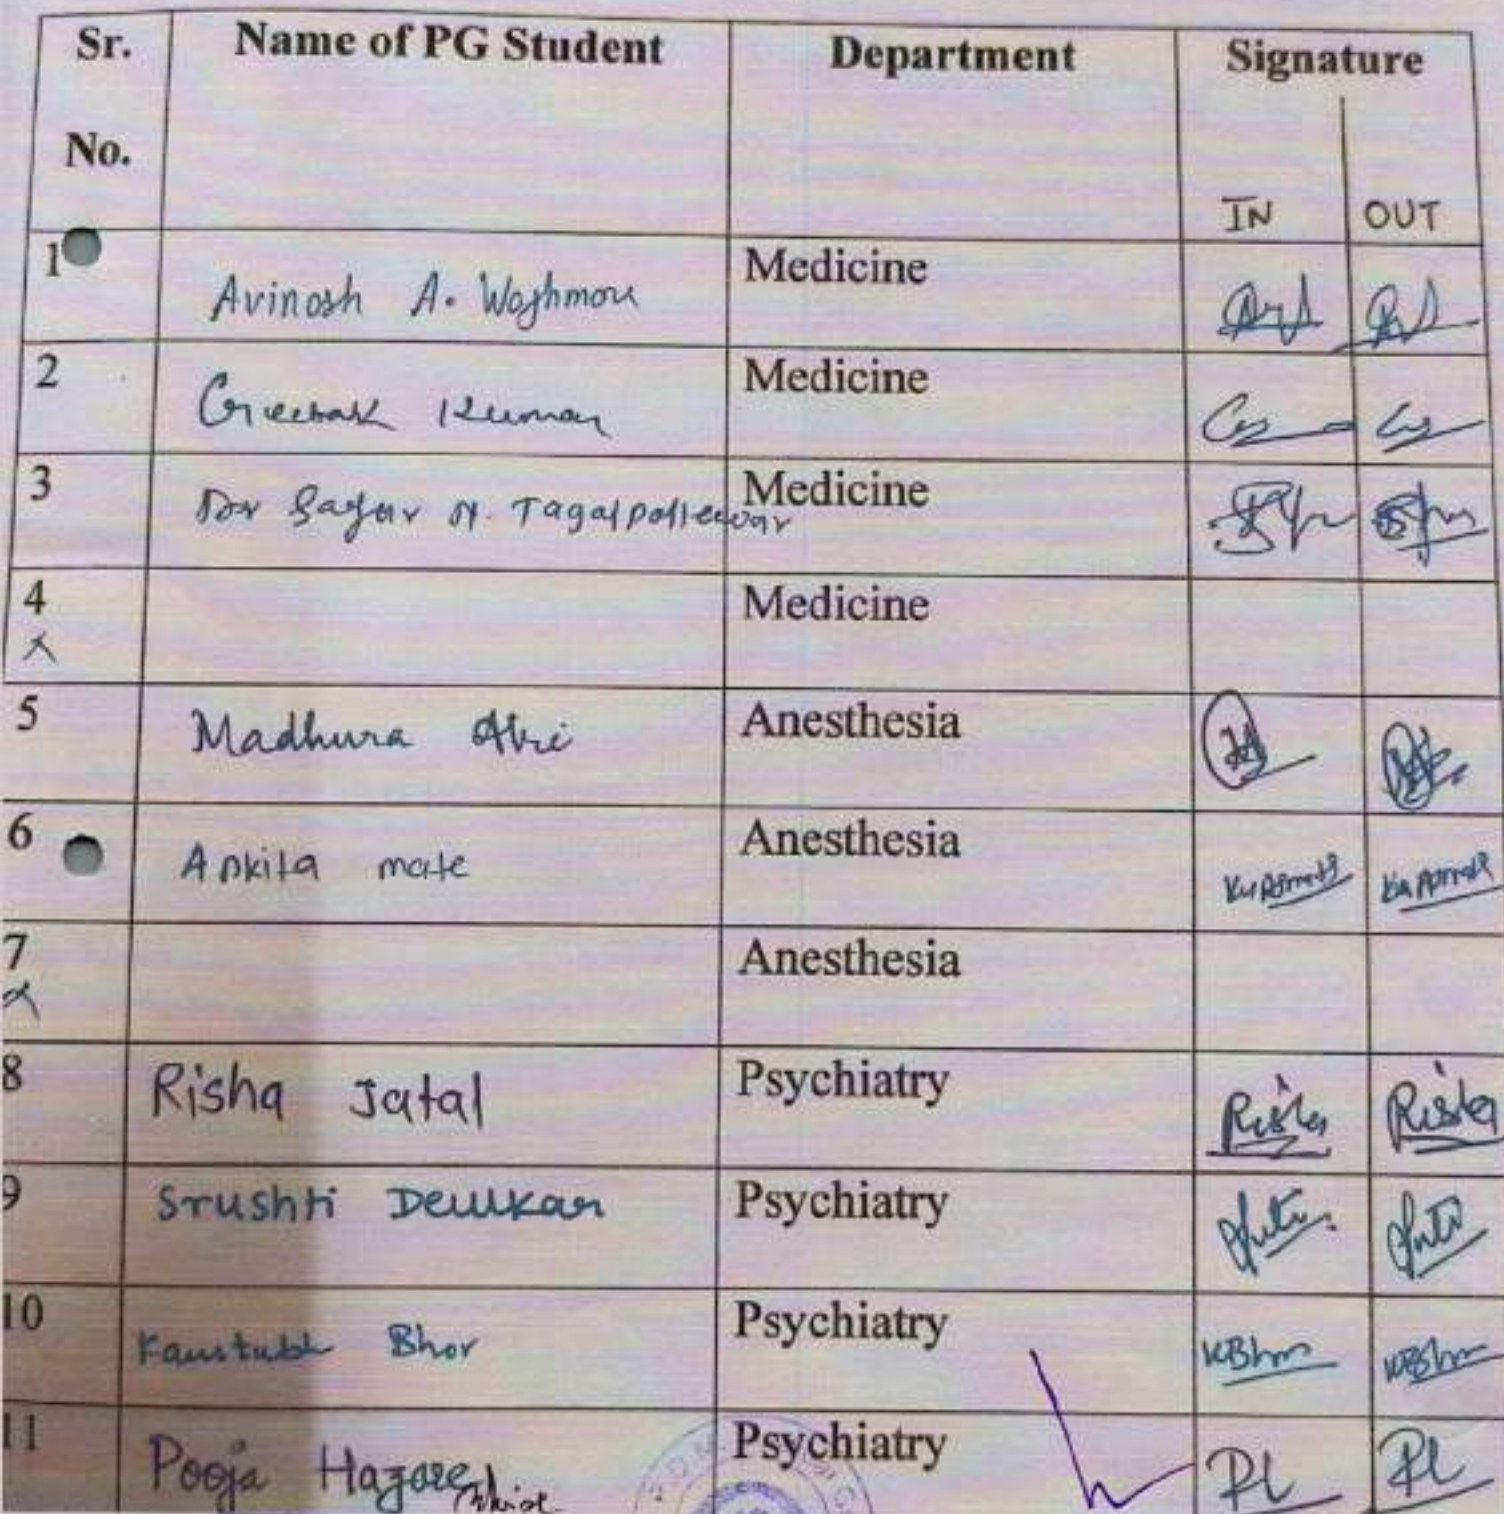 Sr. No. Name of PG Student Department Signature
IN OUT
1 Avinash A. Waghmare Medicine
2 Kumar Medicine
3 Dr Sagar N. Tagalpallewar Medicine
4 Medicine
x
5 Madhura Anesthesia
6 Ankita mate Anesthesia
7 Anesthesia
x
8 Risha Jatal Psychiatry Risha Risha
9 Srushti Deulkar Psychiatry
10 Kaustubh Bhor Psychiatry KBhor KBhor
11 Pooja Hazare Psychiatry